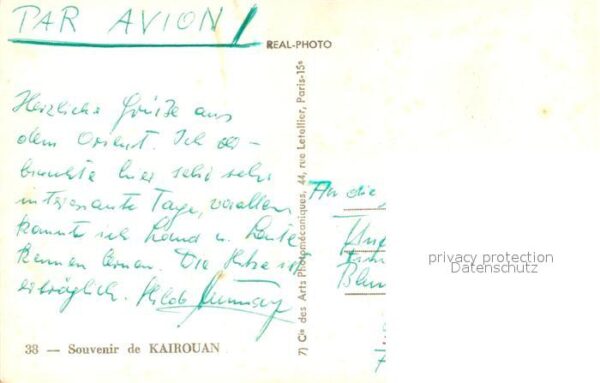 PAR AVION!
REAL-PHOTO
Herzliche Grüße aus
dem Orient. Ich ver-
brachte hier sehr sehr
interessante Tage, vorallem
konnte ich Land u. Leute
kennen lernen. Die Hitze ist
erträglich. Hilde
An die
7) Cie des Arts Photomécaniques, 44, rue Letellier, Paris-15e
privacy protection
Datenschutz
38 — Souvenir de KAIROUAN